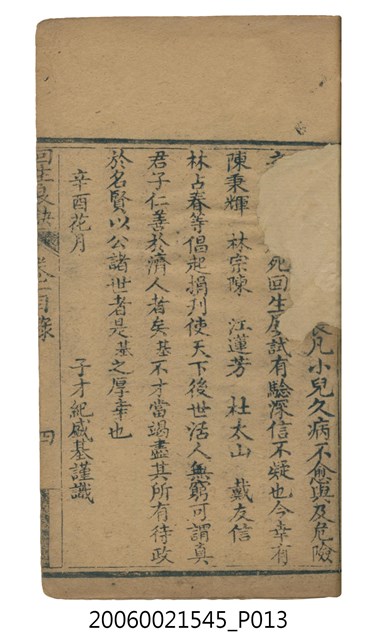 凡小兒久病不愈與及危險
死回生屢試有驗深信不疑也今幸有
陳秉輝 林宗陳 汪蓮芳 杜太山 戴友信
林占春等倡起捐刋使天下後世活人無窮可謂真
君子仁善於濟人者矣基不才當竭盡其所有待政
於名賢以公諸世者是基之厚幸也
辛酉花月 子才紀威基謹識
回生 卷 目錄 四
20060021545_P013